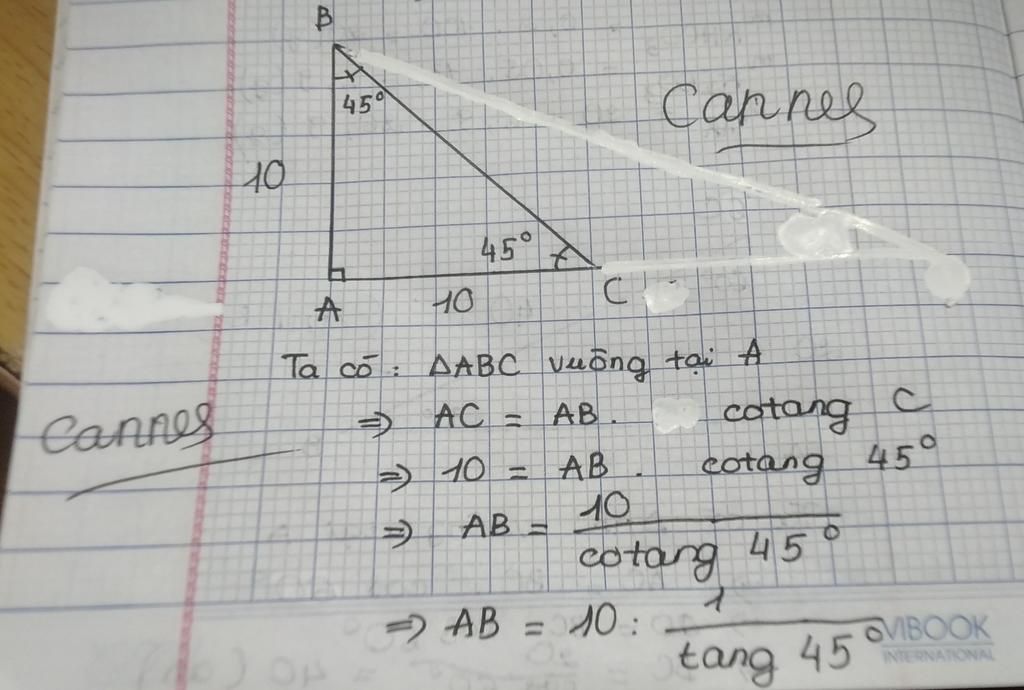 B
45°
Cannes
10
45°
A
10
C
Ta có: ΔABC vuông tại A
Cannes
⇒ AC = AB. cotang C
⇒ 10 = AB. cotang 45°
⇒ AB = 10 / cotang 45°
⇒ AB = 10 : 1 / tang 45°
VIBOOK
INTERNATIONAL